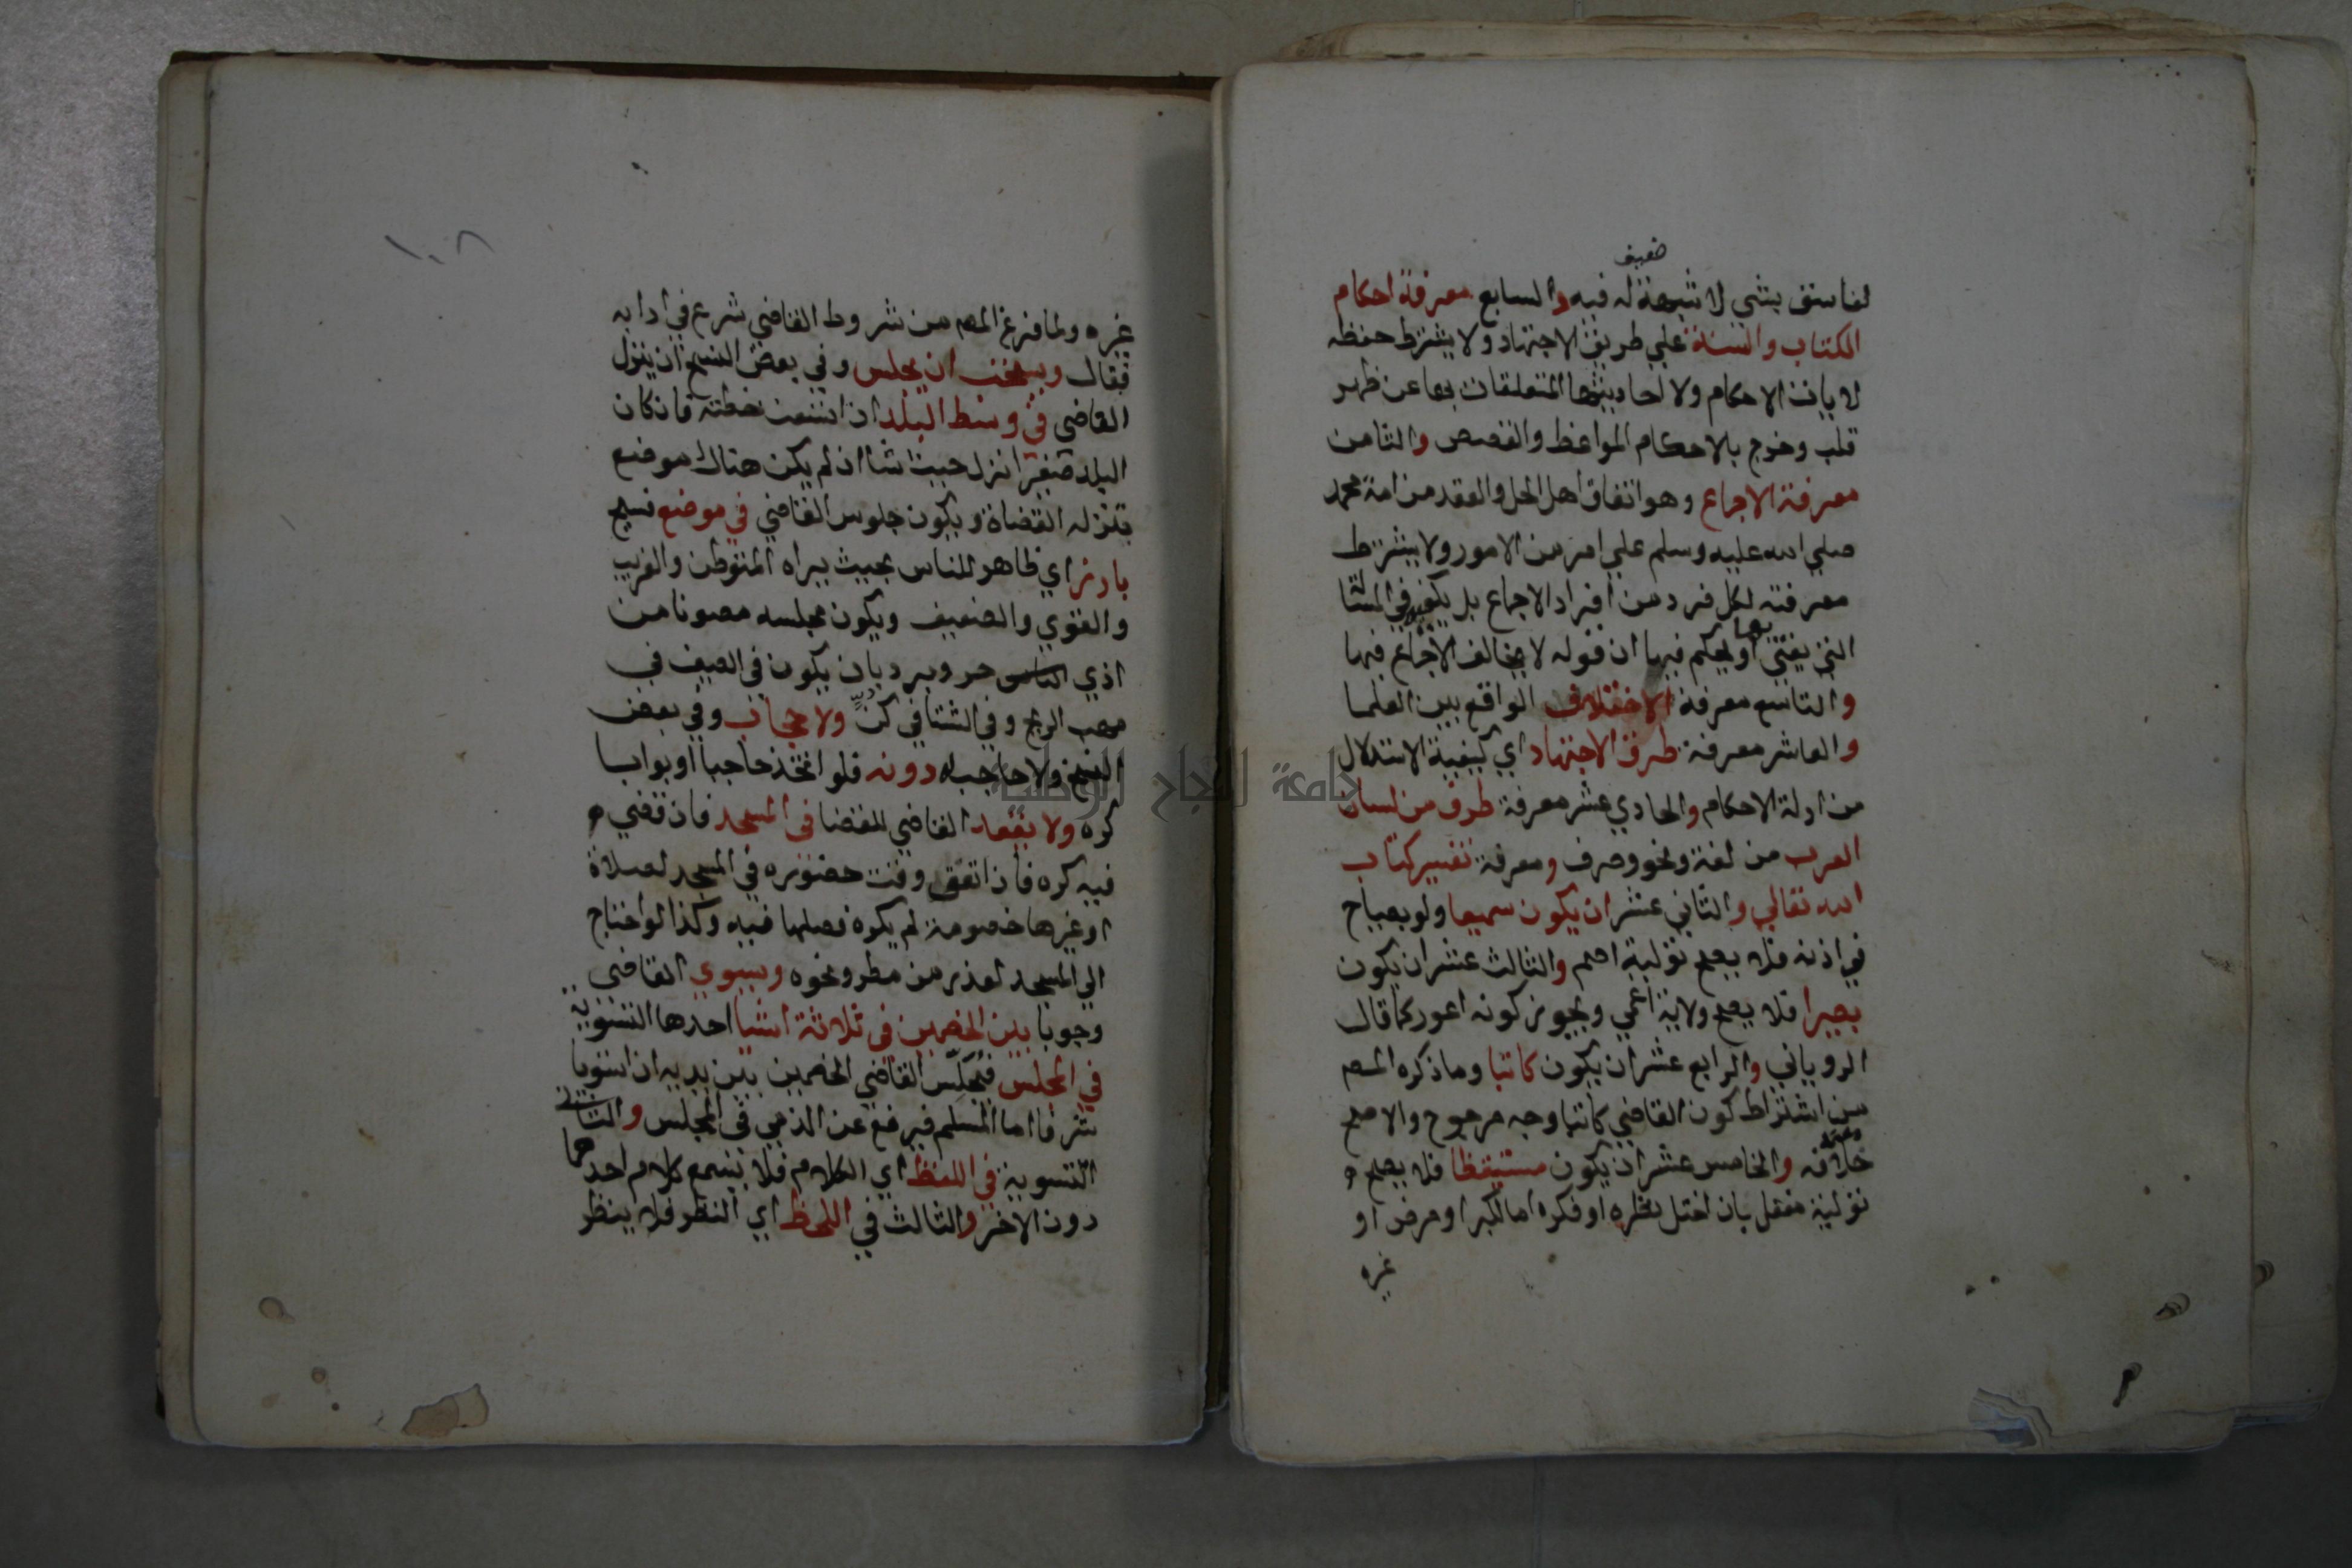 ضعيف
لفاسق بشي لا شبهة له فيه والسابع معرفة احكام
الكتاب والسنة علي طريق الاجتهاد ولا يشترط حفظه
لايات الاحكام ولا احاديثها المتعلقات بها عن ظهر
قلب وخرج بالاحكام المواعظ والقصص والثامن
معرفة الاجماع وهو اتفاق اهل الحل والعقد من امة محمد
صلي الله عليه وسلم علي امر من الامور ولا يشترط
معرفته لكل فرد من افراد الاجماع بل يكفيه في المسئلة
التي يفتي بها او يحكم فيها ان قوله لا يخالف الاجماع فيها
والتاسع معرفة الاختلاف الواقع بين العلما
والعاشر معرفة طرق الاجتهاد اي كيفية الاستدلال
من ادلة الاحكام والحادي عشر معرفة طرف من لسان
العرب من لغة ونحو وصرف ومعرفة تفسير كتاب
الله تعالي والثاني عشر ان يكون سميعا ولو بصياح
في اذنه فلا يصح تولية اصم والثالث عشر ان يكون
بصيرا فلا يصح ولاية اعمي ويجوز كونه اعور كما قال
الروياني والرابع عشر ان يكون كاتبا وما ذكره المصم
من اشتراط كون القاضي كاتبا وجه مرجوح والاصح
خلافه والخامس عشر ان يكون مستيقظا فلا يصح
تولية مغفل بان اختل نظره او فكره اما لكبر او مرض او
غيره
١٠٨
غيره ولما فرغ المصم من شروط القاضي شرع في ادابه
فقال ويستحب ان يجلس وفي بعض النسخ ان ينزل
القاضي في وسط البلد ان اتسعت خطته فان كان
البلد صغيرا نزل حيث شا ان لم يكن هناك موضع
تنزله القضاة ويكون جلوس القاضي في موضع فسيح
بارز اي ظاهر للناس بحيث يراه المتوطن والغريب
والقوي والضعيف ويكون مجلسه مصونا من
اذي حر وبرد بان يكون في الصيف في
مهب الريح وفي الشتا في كن ولا حجاب وفي بعض
النسخ ولا حاجب له دونه فلو اتخذ حاجبا او بوابا
كره ولا يقعد القاضي للقضا في المسجد فان قضي
فيه كره فان اتفق وقت حضوره في المسجد لصلاة
او غيرها خصومة لم يكره فصلها فيه وكذا لو احتاج
الي المسجد لعذر من مطر ونحوه ويسوي القاضي
وجوبا بين الخصمين في ثلاثة اشيا احدها التسوية
في المجلس فيجلس القاضي الخصمين بين يديه ان استويا
شرفا اما المسلم فيرفع عن الذمي في المجلس والثاني
التسوية في اللفظ اي الكلام فلا يسمع كلام احدهما
دون الاخر والثالث في اللحظ اي النظر فلا ينظر
جامعة النجاح الوطنية